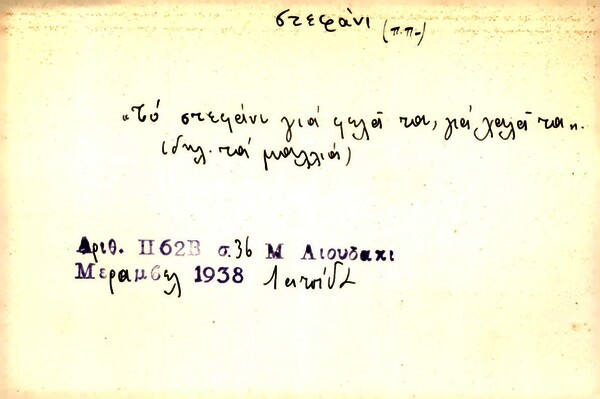 στεφάνι (π.π.)
"Τό στεφάνι γιά φελᾶ τα, γιά χαλᾶ τα".
(δηλ. τά μαλλιά)
Αριθ. Π62Β σ.36 Μ Λιουδακι
Μεραμβελ 1938 Λατσίδα